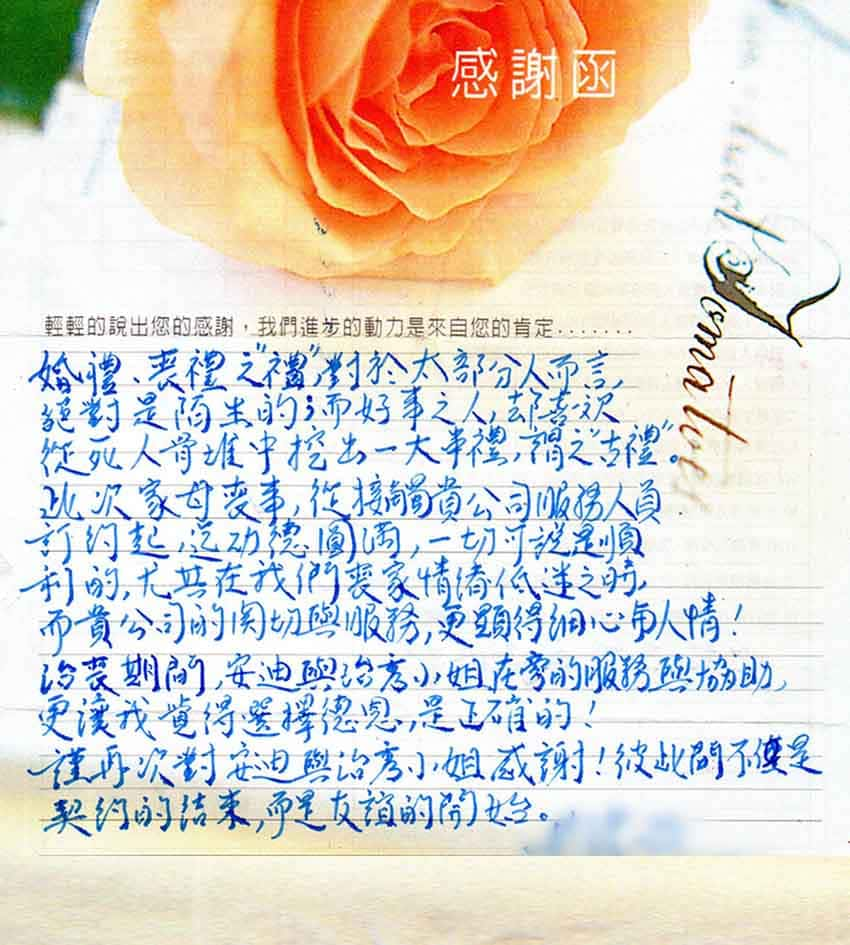 感謝函
輕輕的說出您的感謝，我們進步的動力是來自您的肯定.......
婚禮、喪禮之"禮",對於太部分人而言,
絕對是陌生的;而好事之人,却喜欢
從死人骨堆中挖出一大串禮,謂之"古禮"。
此次家母喪事,從接觸貴公司服務人員
訂約起,迄功德圓滿,一切可說是順
利的,尤其在我們喪家情緒低迷之時,
而貴公司的関切與服務,更顯得細心有人情!
治喪期間,安迪與治彥小姐在旁的服務與協助,
更讓我覺得選擇德恩,是正確的!
謹再次對安迪與治彥小姐感謝!彼此間不僅是
契約的結束,而是友誼的開始。